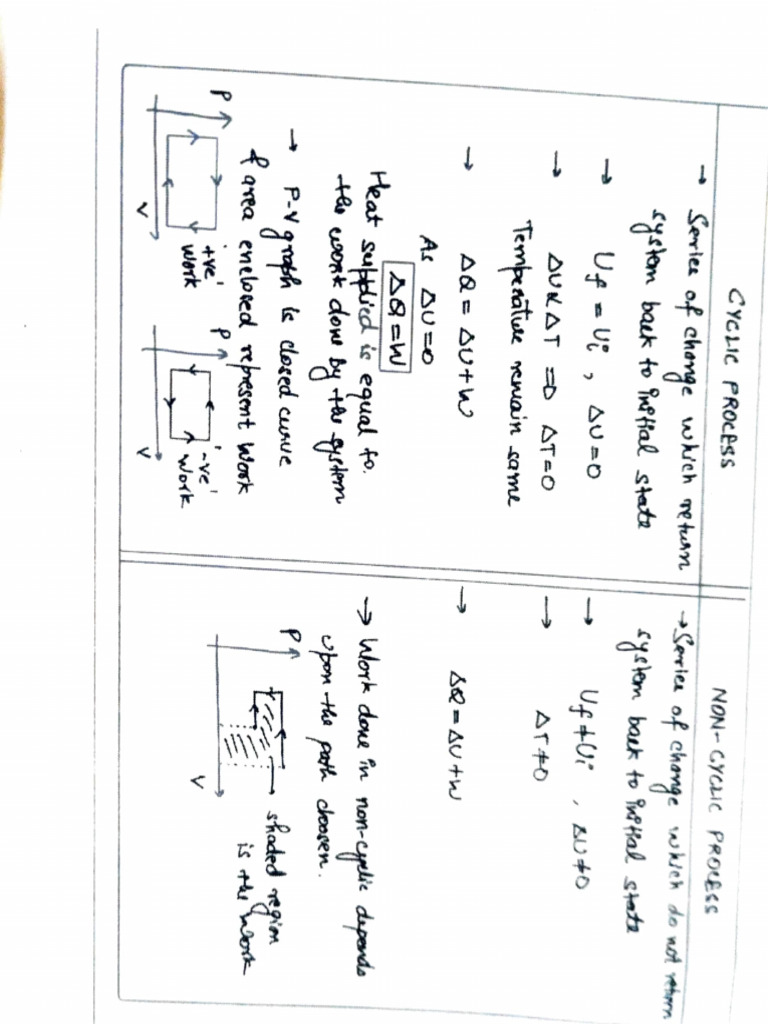 CYCLIC PROCESS
→ Series of change which return
system back to initial state
→ Uf = Ui , ΔU = 0
→ ΔU ∝ ΔT ⇒ ΔT = 0
Temperature remain same
→ ΔQ = ΔU + W
As ΔU = 0
ΔQ = W
Heat supplied is equal to
the work done by the system
→ P-V graph is closed curve
& area enclosed represent work
P
V
'+ve'
work
P
V
'-ve'
work
NON-CYCLIC PROCESS
→ Series of change which do not return
system back to initial state
→ Uf ≠ Ui , ΔU ≠ 0
→ ΔT ≠ 0
→ ΔQ = ΔU + W
→ Work done in non-cyclic depends
upon the path choosen.
P
V
shaded region
is the work